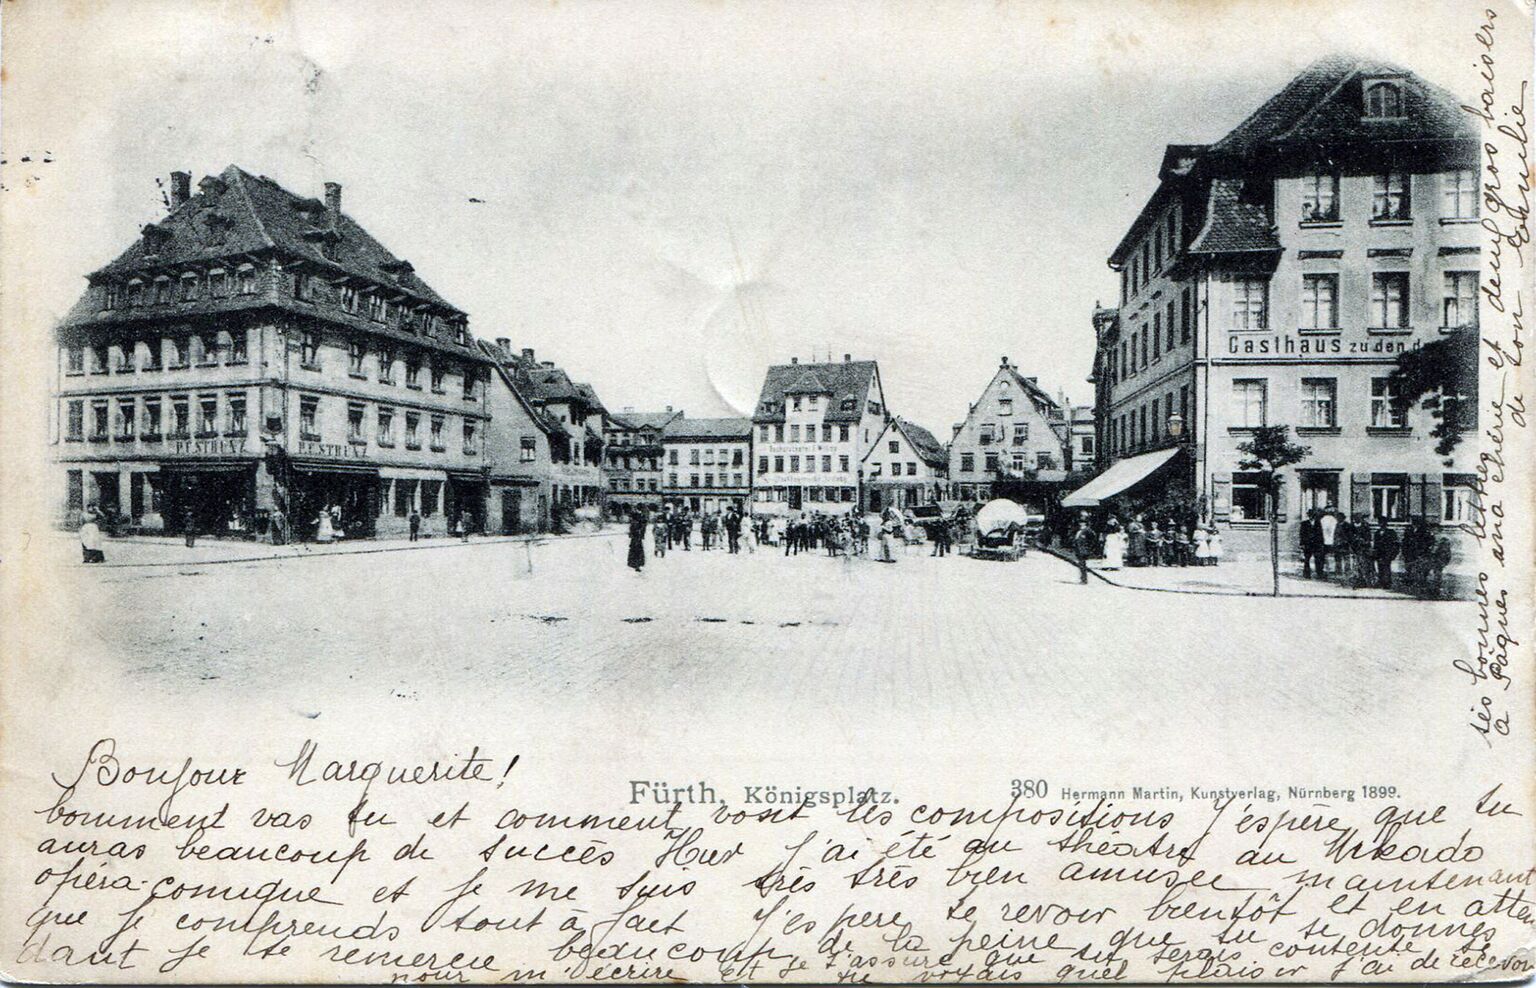 P. E. STRENZ
P. E. STRENZ
Gasthaus zu den d
Bonjour Marguerite!
Fürth, Königsplatz.
380 Hermann Martin, Kunstverlag, Nürnberg 1899.
Comment vas tu et comment vont tes compositions J'espère que tu
auras beaucoup de succès Hier j'ai été au théâtre au Mikado
opéra-comique et je me suis très très bien amusée maintenant
que je comprends tout à fait J'espère te revoir bientôt et en atten
dant je te remercie beaucoup de la peine que tu te donnes
pour m'écrire Et je t'assure que tu serais contente si
tu voyais quel plaisir j'ai de recevoir
tes bonnes lettres
à Pâques ma chérie et deux gros baisers
de ton Emilie